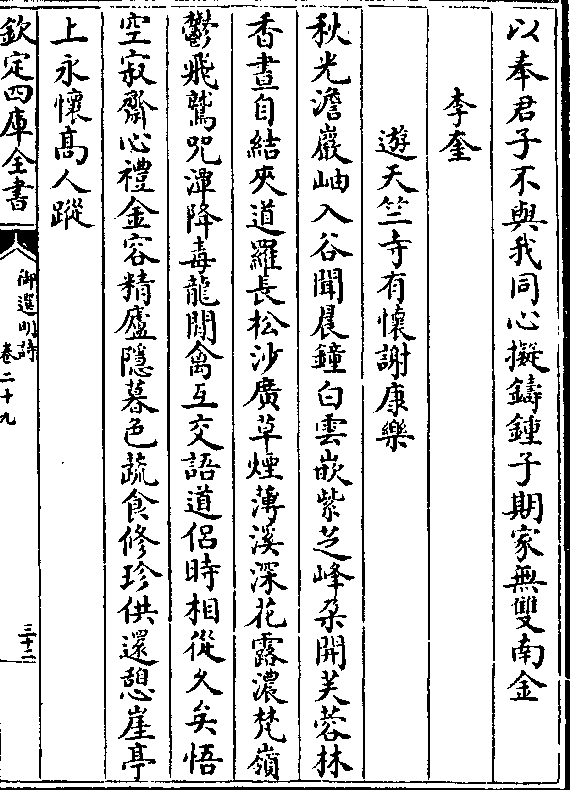 以奉君子不與我同心擬鑄鍾子期家無雙南金
李奎
遊天竺寺有懷謝康樂
秋光澹巖岫入谷聞晨鐘白雲嵌紫芝峰朶開芙蓉林
香晝自結夾道羅長松沙廣草煙薄溪深花露濃梵嶺
鬱飛鷲咒潭降毒龍閒禽互交語道侶時相從久矣悟
空寂齋心禮金容精廬隱暮色蔬食修珍供還憩崖亭
上永懷髙人蹤
欽定四庫全書
御選明詩
卷二十九
三十二